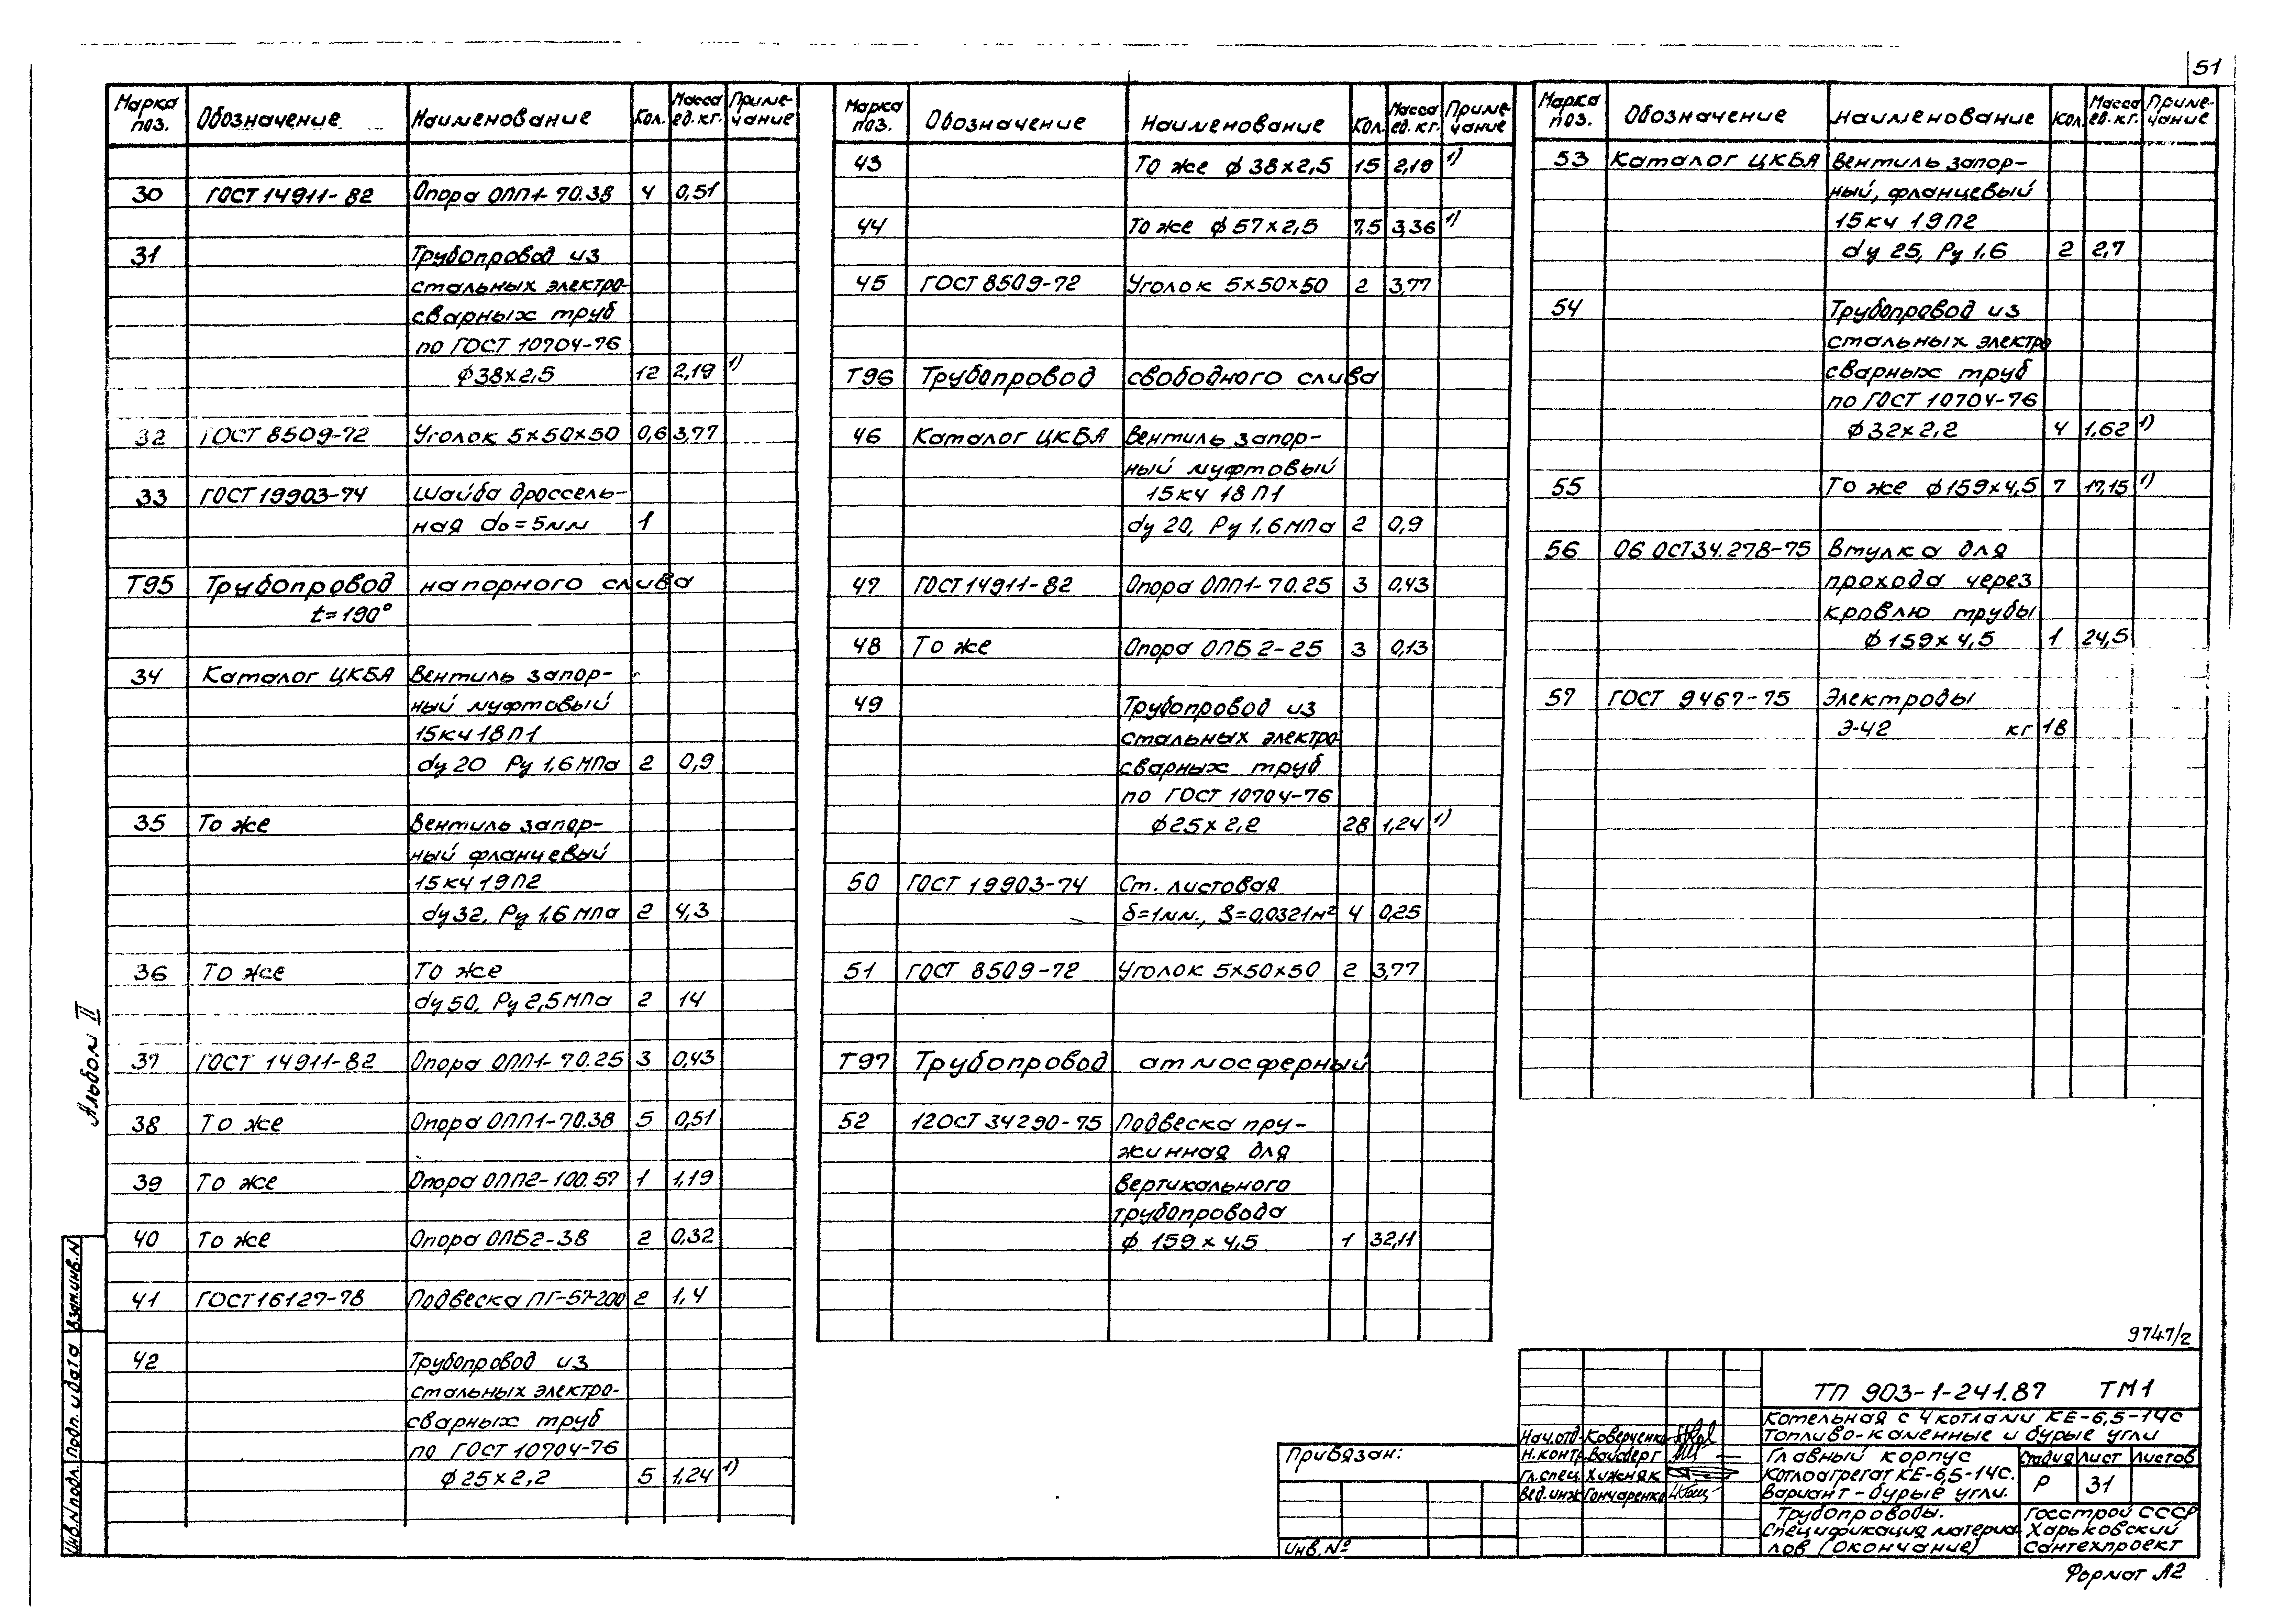 51
Марка поз. Обозначение Наименование Кол. Масса ед.кг. Примечание
30 ГОСТ 14911-82 Опора ОПП1-70.38 4 0,51
31 Трубопровод из
стальных электро-
сварных труб
по ГОСТ 10704-76
ф38х2,5 12 2,19 1)
32 ГОСТ 8509-72 Уголок 5х50х50 0,6 3,77
33 ГОСТ 19903-74 Шайба дроссель-
ная do=5мм 1
Т95 Трубопровод напорного слива
t=190°
34 Каталог ЦКБА Вентиль запор-
ный муфтовый
15кч18п1
dy 20 Ру 1,6 МПа 2 0,9
35 То же Вентиль запор-
ный фланцевый
15кч19п2
dy32, Ру 1,6 МПа 2 4,3
36 То же То же
dy 50, Ру 2,5 МПа 2 14
37 ГОСТ 14911-82 Опора ОПП1-70.25 3 0,43
38 То же Опора ОПП1-70.38 5 0,51
39 То же Опора ОПП2-100.57 1 1,19
40 То же Опора ОПБ2-38 2 0,32
41 ГОСТ 16127-78 Подвеска ПГ-57-200 2 1,4
42 Трубопровод из
стальных электро-
сварных труб
по ГОСТ 10704-76
ф25х2,2 5 1,24 1)
Марка поз. Обозначение Наименование Кол. Масса ед.кг. Примечание
43 То же ф 38х2,5 15 2,19 1)
44 То же ф 57х2,5 7,5 3,36 1)
45 ГОСТ 8509-72 Уголок 5х50х50 2 3,77
Т96 Трубопровод свободного слива
46 Каталог ЦКБА Вентиль запор-
ный муфтовый
15кч 18 п1
dy 20, Ру 1,6 МПа 2 0,9
47 ГОСТ 14911-82 Опора ОПП1-70.25 3 0,43
48 То же Опора ОПБ 2-25 3 0,13
49 Трубопровод из
стальных электро-
сварных труб
по ГОСТ 10704-76
ф25х2,2 28 1,24 1)
50 ГОСТ 19903-74 Ст. листовая
δ=1мм., S=0,0321м² 4 0,25
51 ГОСТ 8509-72 Уголок 5х50х50 2 3,77
Т97 Трубопровод атмосферный
52 12ОСТ 34290-75 Подвеска пру-
жинная для
вертикального
трубопровода
ф 159 х 4,5 1 32,11
Марка поз. Обозначение Наименование Кол. Масса ед.кг. Примечание
53 Каталог ЦКБА Вентиль запор-
ный, фланцевый
15кч 19п2
dy 25, Ру 1,6 2 2,7
54 Трубопровод из
стальных электро
сварных труб
по ГОСТ 10704-76
ф32х2,2 4 1,62 1)
55 То же ф159х4,5 7 17,15 1)
56 06 ОСТ34.278-75 Втулка для
прохода через
кровлю трубы
ф 159х 4,5 1 24,5
57 ГОСТ 9467-75 Электроды
Э-42 кг 18
Альбом II
Взам.инв.N
Подп. и дата
Инв.N подл.
9747/2
ТП 903-1-241.87 ТМ1
Котельная с 4 котлами КЕ-6,5-14С
Топливо-каменные и бурые угли
Нач.отд. Коверченко
Н.контр. Вайсберг
Гл.спец. Хижняк
Вед.инж Гончаренко
Главный корпус
Котлоагрегат КЕ-6,5-14С.
Вариант-бурые угли.
Стадия Лист Листов
Р 31
Трубопроводы.
Спецификация материа-
лов (окончание)
Госстрой СССР
Харьковский
Сантехпроект
Привязан:
Инв.№
Формат А2